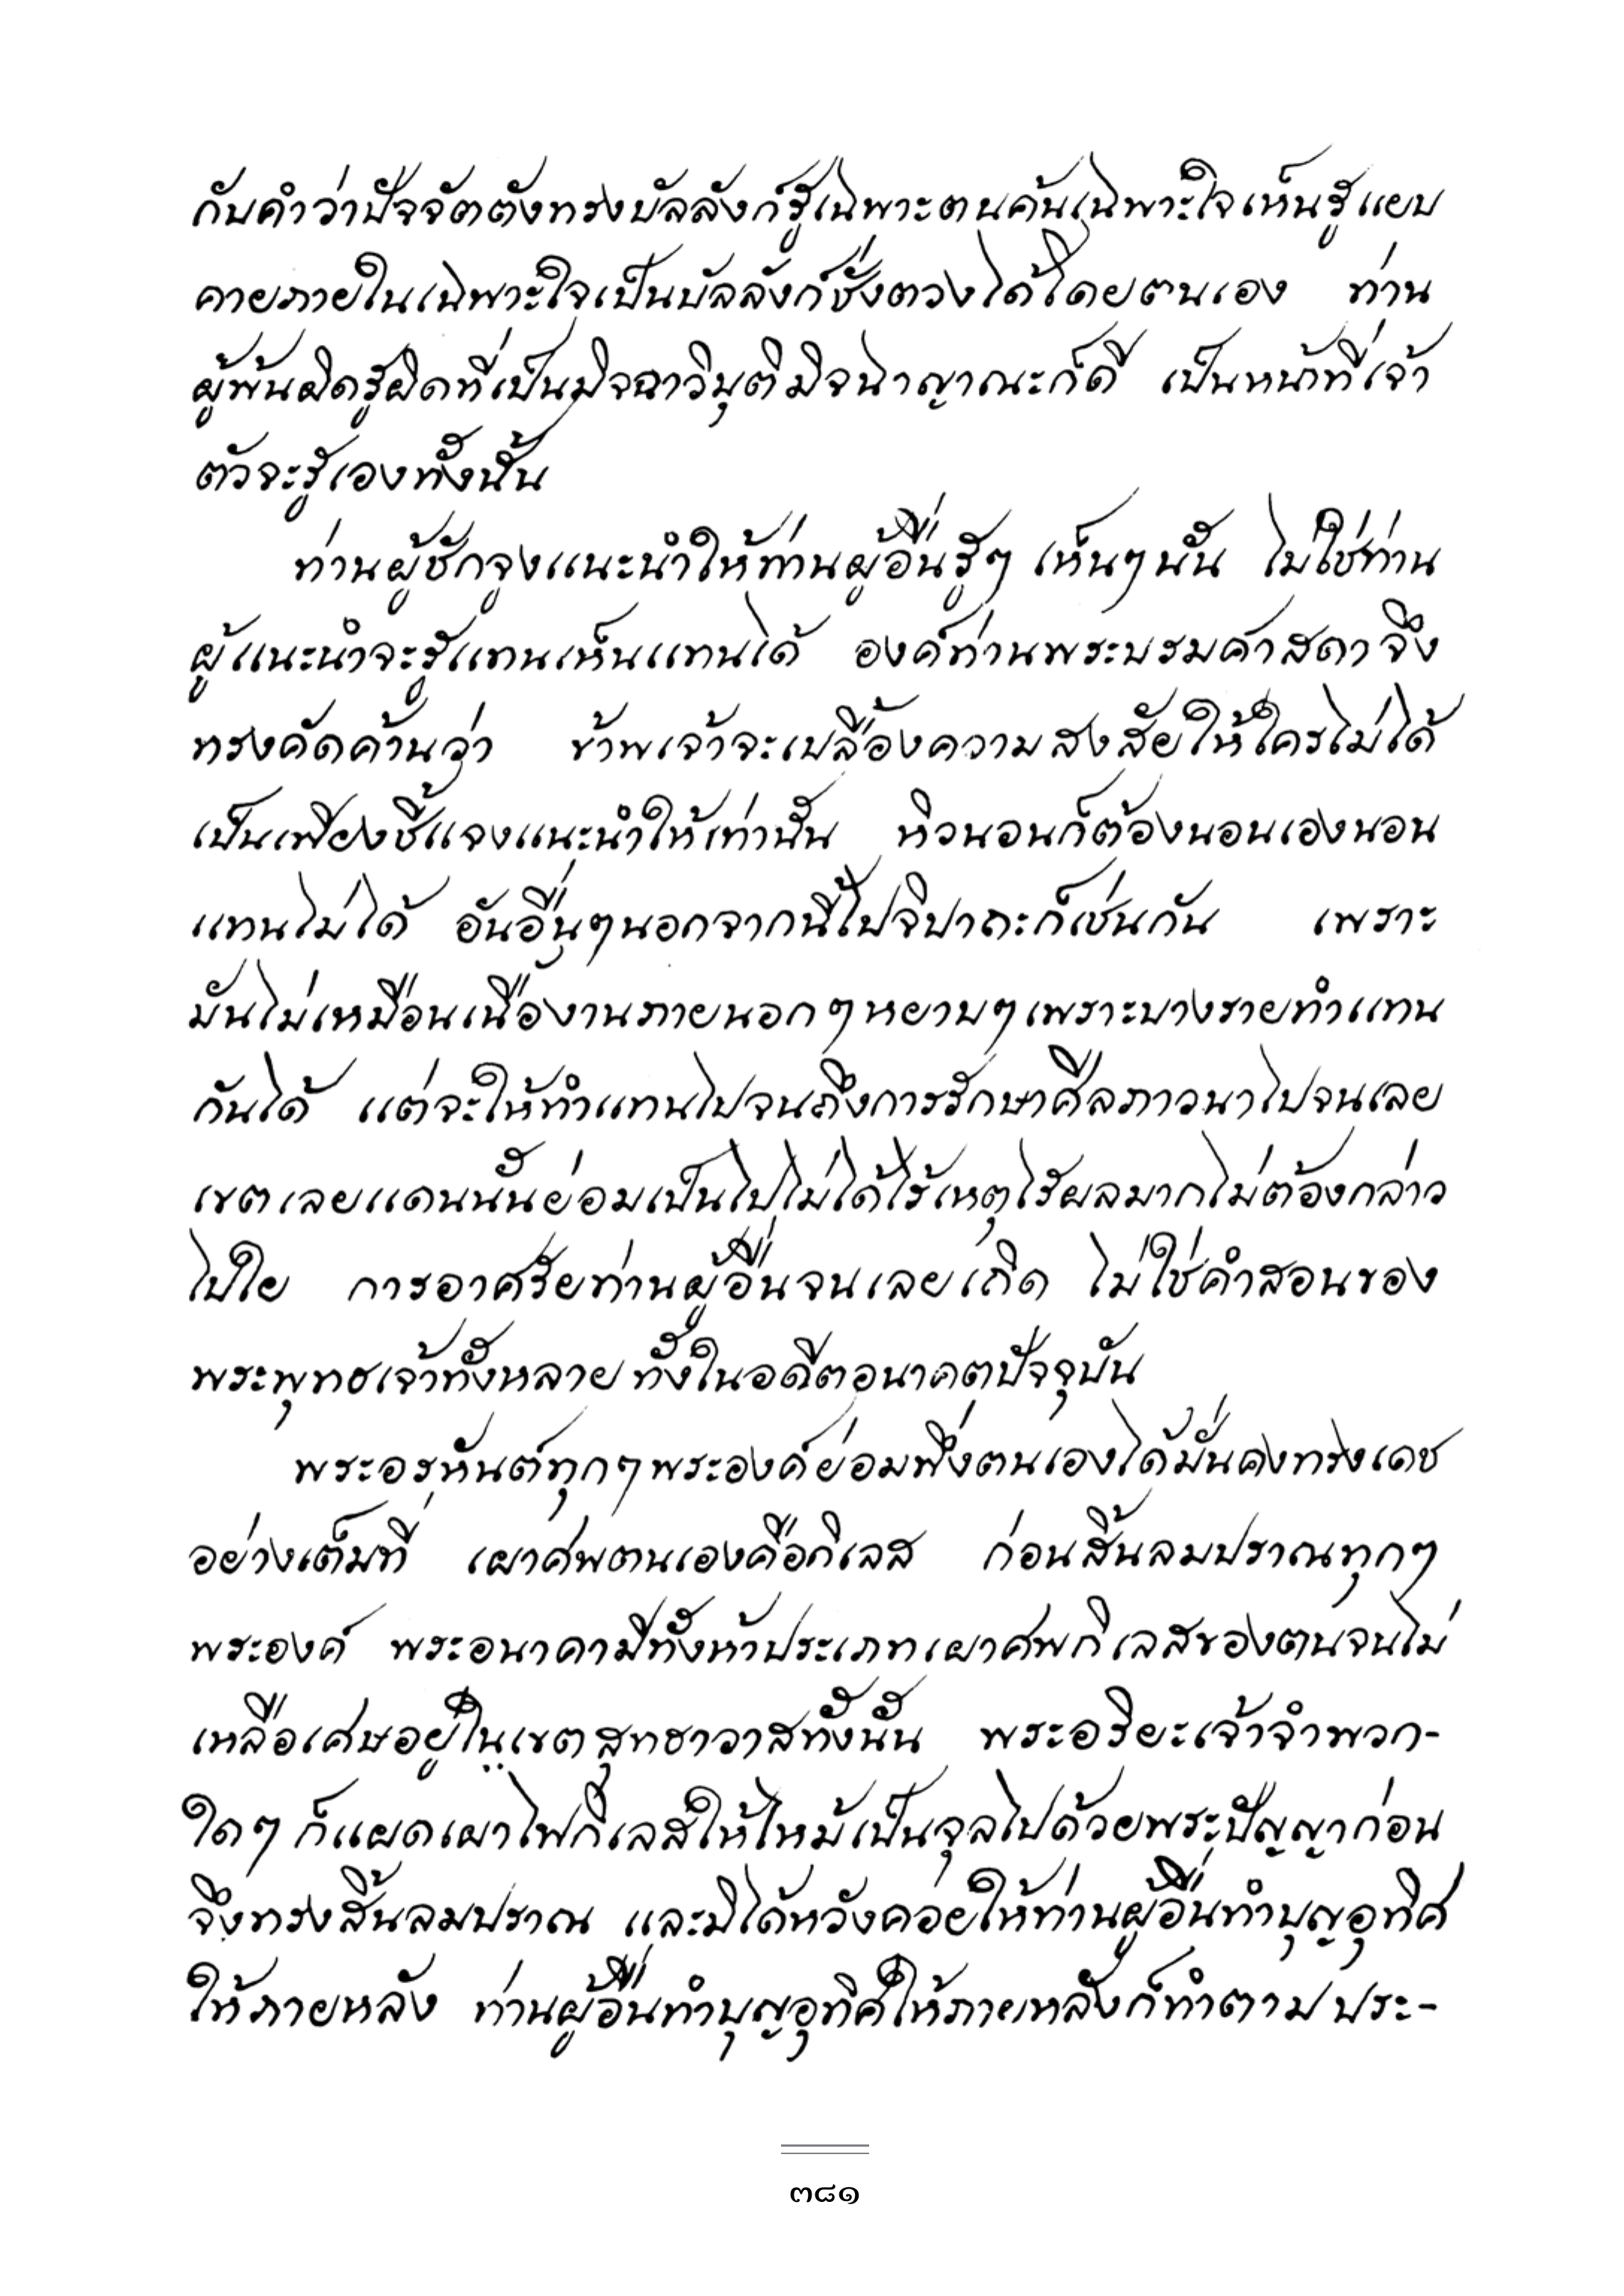 กับคำว่าปัจจัตตังทรงบัลลังก์รู้เฉพาะตนค้นเฉพาะใจเห็นรู้แยบ
คายภายในเฉพาะใจเป็นบัลลังก์ชั่งตวงได้โดยตนเอง ท่าน
ผู้พ้นผิดรู้ผิดที่เป็นมิจฉาวิมุติมิจฉาญาณะก็ดี เป็นหน้าที่เจ้า
ตัวจะรู้เองทั้งนั้น
ท่านผู้ชักจูงแนะนำให้ท่านผู้อื่นรู้ๆ เห็นๆ นั้น ไม่ใช่ท่าน
ผู้แนะนำจะรู้แทนเห็นแทนได้ องค์ท่านพระบรมศาสดาจึง
ทรงคัดค้านว่า ข้าพเจ้าจะเปลื้องความสงสัยให้ใครไม่ได้
เป็นเพียงชี้แจงแนะนำให้เท่านั้น หิวนอนก็ต้องนอนเองนอน
แทนไม่ได้ อันอื่นๆนอกจากนี้ไปจิปาถะก็เช่นกัน เพราะ
มันไม่เหมือนเนื้องานภายนอกๆหยาบๆเพราะบางรายทำแทน
กันได้ แต่จะให้ทำแทนไปจนถึงการรักษาศีลภาวนาไปจนเลย
เขตเลยแดนนั้นย่อมเป็นไปไม่ได้ไร้เหตุไร้ผลมากไม่ต้องกล่าว
ไปใย การอาศรัยท่านผู้อื่นจนเลยเถิด ไม่ใช่คำสอนของ
พระพุทธเจ้าทั้งหลาย ทั้งในอดีตอนาคตปัจจุบัน
พระอรหันต์ทุกๆพระองค์ย่อมพึ่งตนเองได้มั่นคงทรงเดช
อย่างเต็มที่ เผาศพตนเองคือกิเลส ก่อนสิ้นลมปราณทุกๆ
พระองค์ พระอนาคามีทั้งห้าประเภทเผาศพกิเลสของตนจนไม่
เหลือเศษอยู่ในเขตสุทธาวาสทั้งนั้น พระอริยะเจ้าจำพวก-
ใดๆ ก็แผดเผาไฟกิเลสให้ไหม้เป็นจุลไปด้วยพระปัญญาก่อน
จึงทรงสิ้นลมปราณ และมิได้หวังคอยให้ท่านผู้อื่นทำบุญอุทิศ
ให้ภายหลัง ท่านผู้อื่นทำบุญอุทิศให้ภายหลังก็ทำตามประ-
๓๘๑